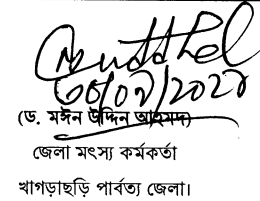 (ড. মঈন উদ্দিন আহমদ)
জেলা মৎস্য কর্মকর্তা
খাগড়াছড়ি পার্বত্য জেলা।